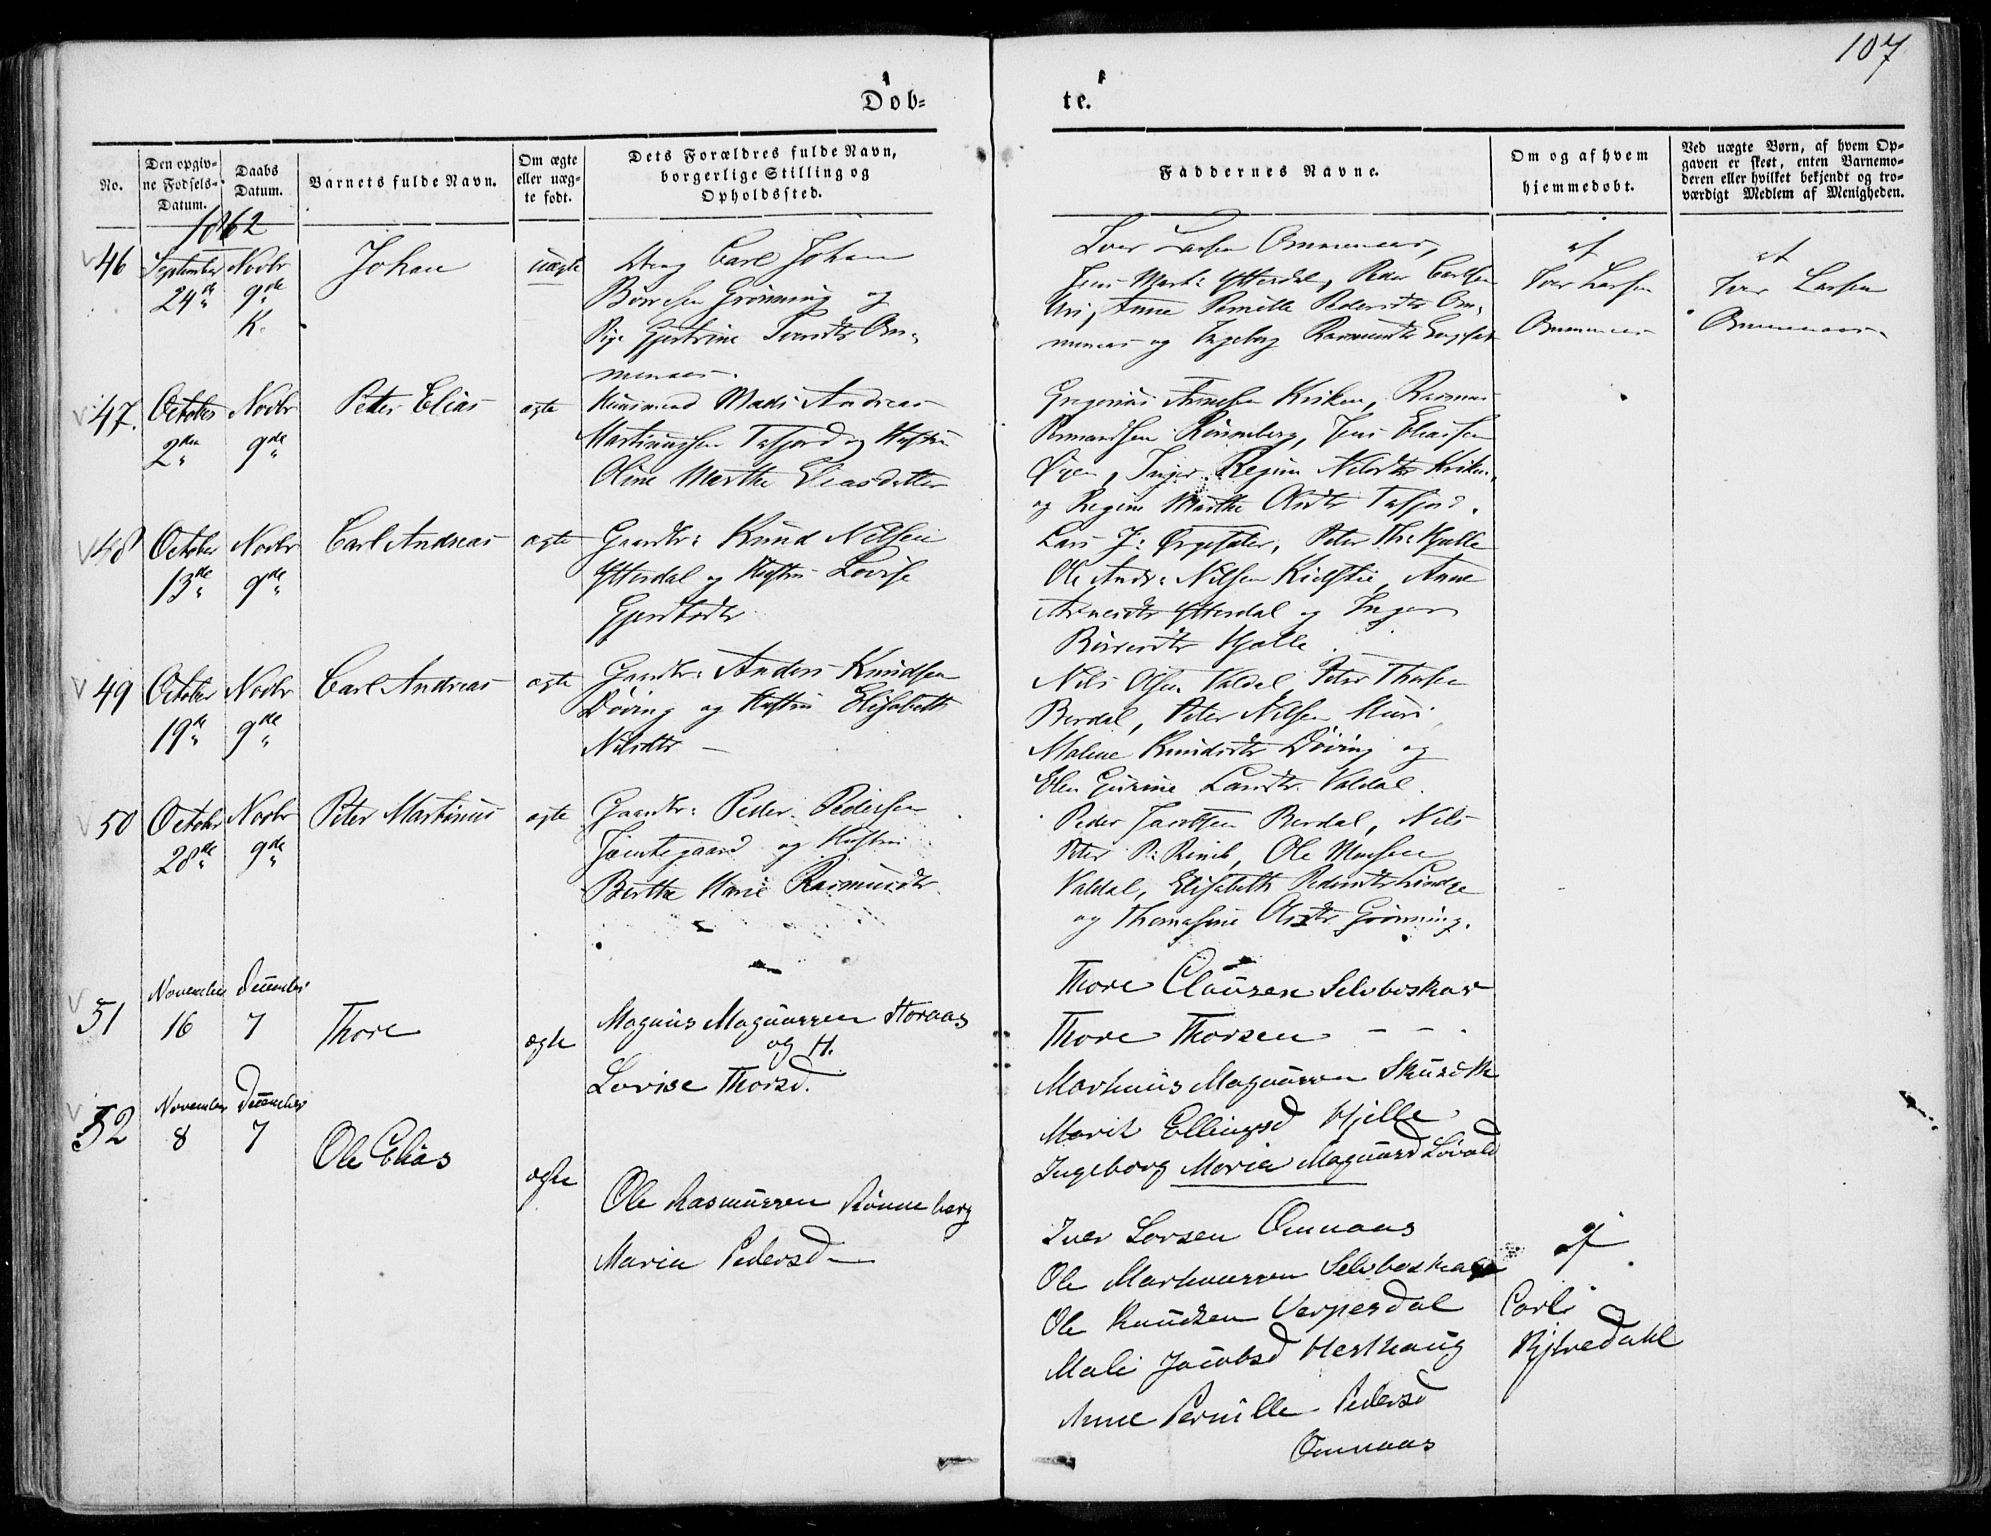 107
Døb=
te.
No.
Den opgiv-
ne Fødsels-
Datum.
Daabs
Datum.
Barnets fulde Navn.
Om ægte
eller uæg-
te født.
Dets Forældres fulde Navn,
borgerlige Stilling og
Opholdssted.
Faddernes Navne.
Om og af hvem
hjemmedøbt.
Ved uægte Børn, af hvem Op-
gaven er skeet, enten Barnemo-
deren eller hvilket bekjendt og tro-
værdigt Medlem af Menigheden.
1862
46
September
24de
Novbr
9de
K.
Johan
uægte
Ung Carl Johan
Børresen Grønning og
Pige Gjertrine Om-
menaas.
Iver Larsen Ommenaas,
Jens Ytterdal, Peder Carlsen
Uri, Anne Pernille Pedersdtr Om-
menaas og Ingeborg Rasmusdtr
af
Iver Larsen
Ommenaas
af
Iver Larsen
Ommenaas
47.
October
2den
Novbr
9de
Petter Elias
ægte
Huusmand Mads Andreas
Martinussen Tafjord og Hustru
Oline Marthe Eliasdatter
Gregorius Arnesen Kriken, Rasmus
Rønneberg, Jens Eliassen
Øyen, Inger Regine Nilsdtr Kriken,
og Regine Marthe Olsdtr Tafjord.
48
October
13de
Novbr
9de
Carl Andreas
ægte
Gaardbr: Knud Nilsen
Ytterdal og Hustru Lovise
Gjerdtsdtr
Lars J: Peter Th: Hjelle
Ole Andr: Nilsen Anne
Arnesdtr Ytterdal og Inger
Børresdtr Hjelle.
49
October
19de
Novbr
9de
Carl Andreas
ægte
Gaardbr: Anders Knudsen
Døving og Hustru Elisabeth
Nilsdtr –
Nils Olsen Valdal, Peter Thorsen
Berdal, Peter Nilsen Muri,
Malene Knudsdtr Døving og
Elen Gurine Larsdtr Valdal.
50
October
28de
Novbr
9de
Peter Martinus
ægte
Gaardbr: Peder Pedersen
Jemtegaard og Hustru
Berthe Marie Rasmusdtr.
Peder Jacobsen Berdal, Nils
Peter P: Ole
Valdal, Elisabeth Pedersdtr Linge
og Thomasine Olsdtr Grønning.
51
November
16
December
7
Thore
ægte
Magnus Magnussen Storaas
og H.
Lovise Thorsd.
Thore Claüsen Selboskar
Thore Thorsen – – .
Martinus Magnüssen
Marit Ellingsd Hjelle
Ingeborg Maria Magnusd Løvold
52
November
8
December
7
Ole Elias
ægte
Ole Rasmüssen Rønneberg
Maria Pedersd –
Iver Larsen Omnaas
Ole Martinussen Selboskar
Ole Knüdsen Verpesdal
Mali Jacobsd Hesthaug
Anne Pernille Pedersd
Omnaas
af
Carl